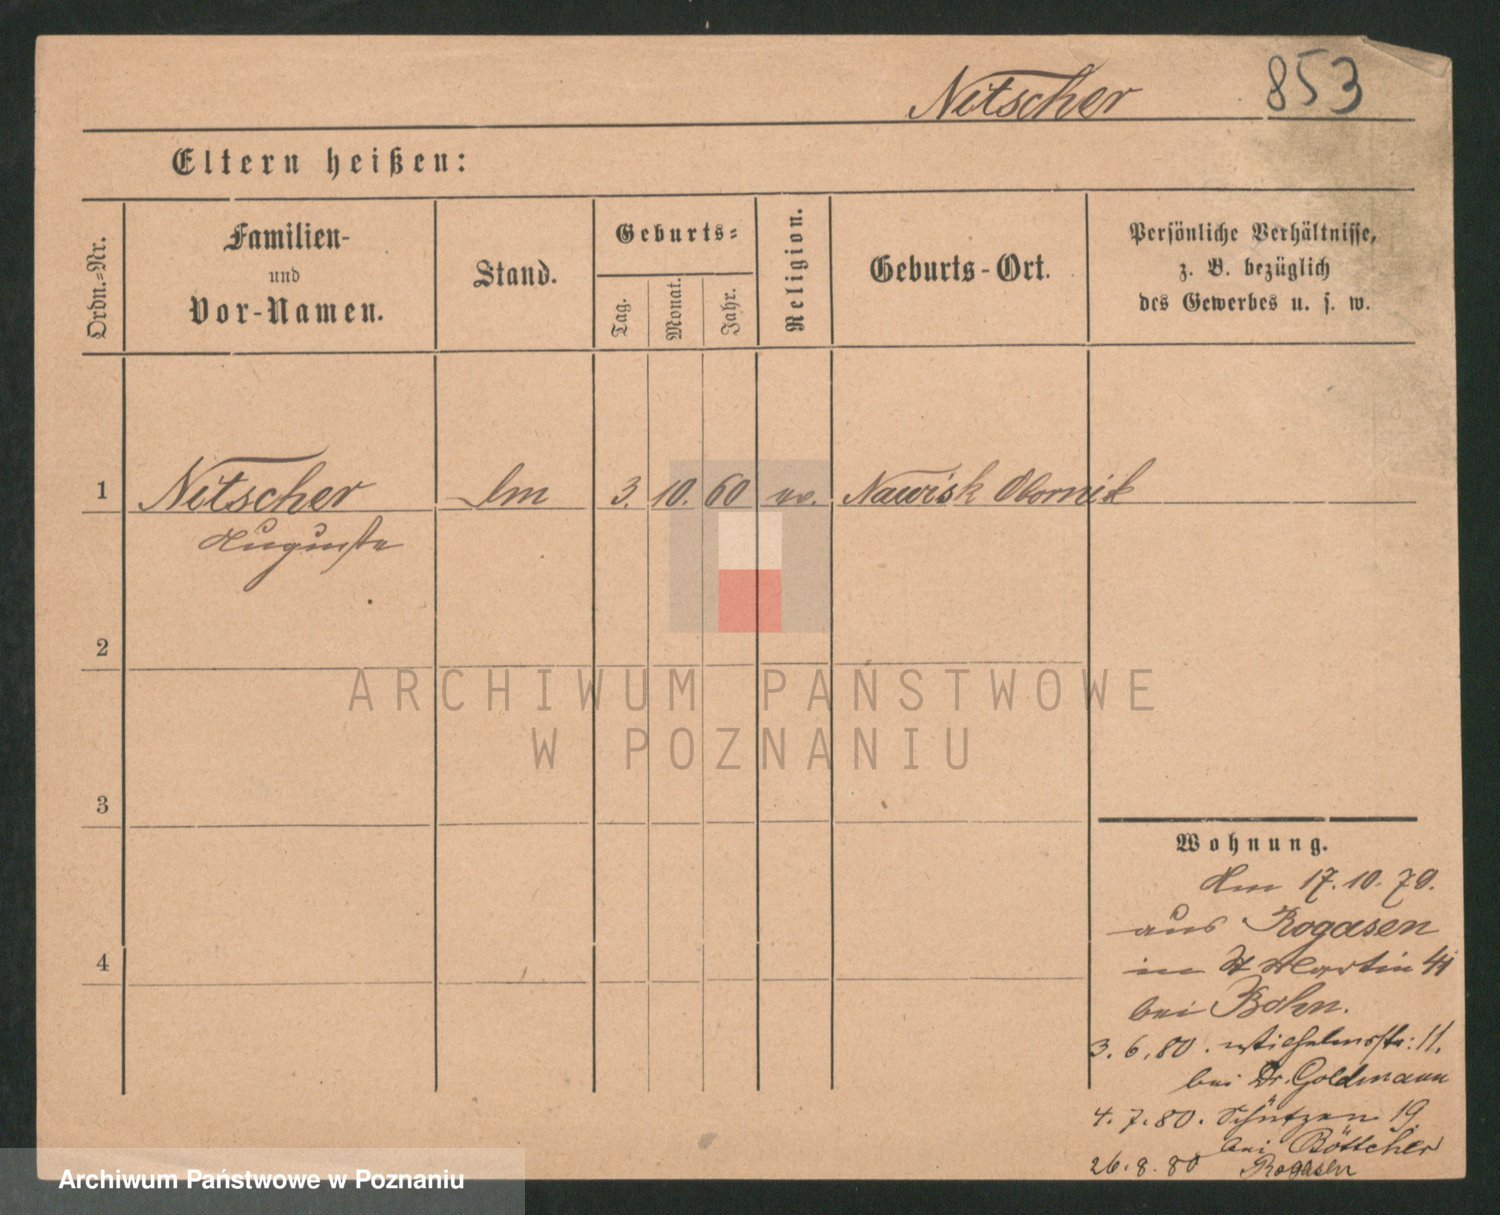 Nitscher 853
Eltern heißen:
Ordn.-Nr.
Familien-
und
Vor-Namen.
Stand.
Geburts-
Tag.
Monat.
Jahr.
Religion.
Geburts-Ort.
Persönliche Verhältnisse,
z. B. bezüglich
des Gewerbes u. s. w.
1 Nitscher 3. 10. 60 ev. Nawisk Obornik
Auguste
2
ARCHIWUM PAŃSTWOWE
W POZNANIU
3
4
Wohnung.
Am 17. 10. 79.
aus Rogasen
in St Martin 41
bei Bohn.
3. 6. 80. Wilhelmsstr: 11.
bei Dr. Goldmann
4. 7. 80. Schützen 19.
bei Böttcher
26. 8. 80 Rogasen
Archiwum Państwowe w Poznaniu